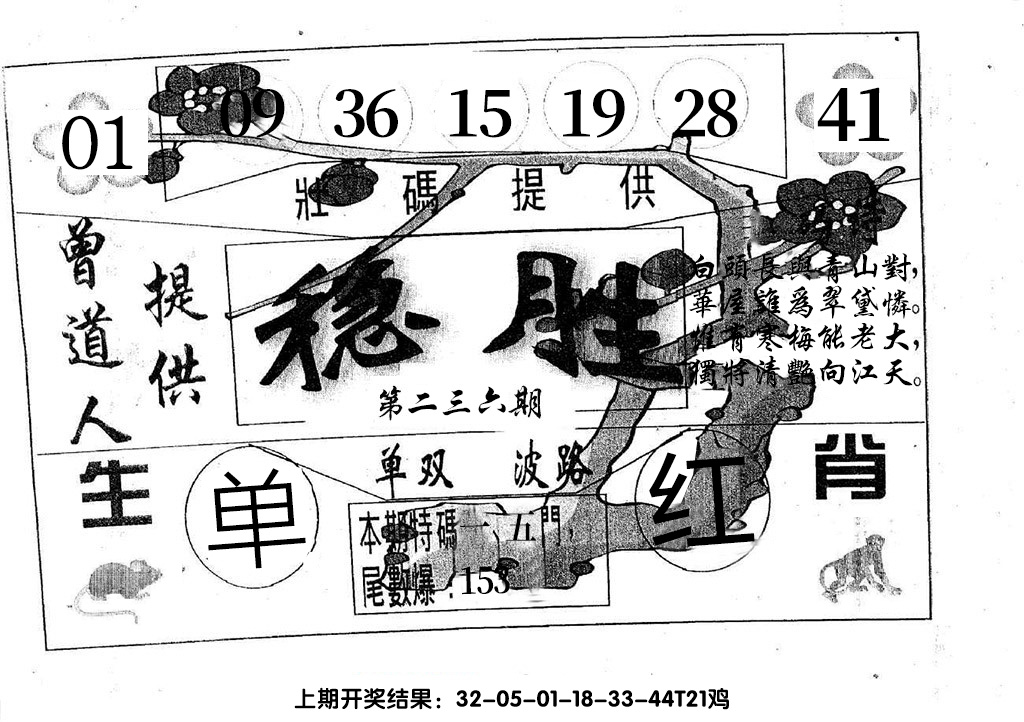 01 09 36 15 19 28 41
壯碼提供
曾道人
提供
稳胜
第二三六期
白頭長與青山對，
華屋誰爲翠黛憐。
惟有寒梅能老大，
獨將清艷向江天。
单双 波路
生肖
单
红
本期特碼一、五門，
尾數爆：153
上期开奖结果：32-05-01-18-33-44T21鸡